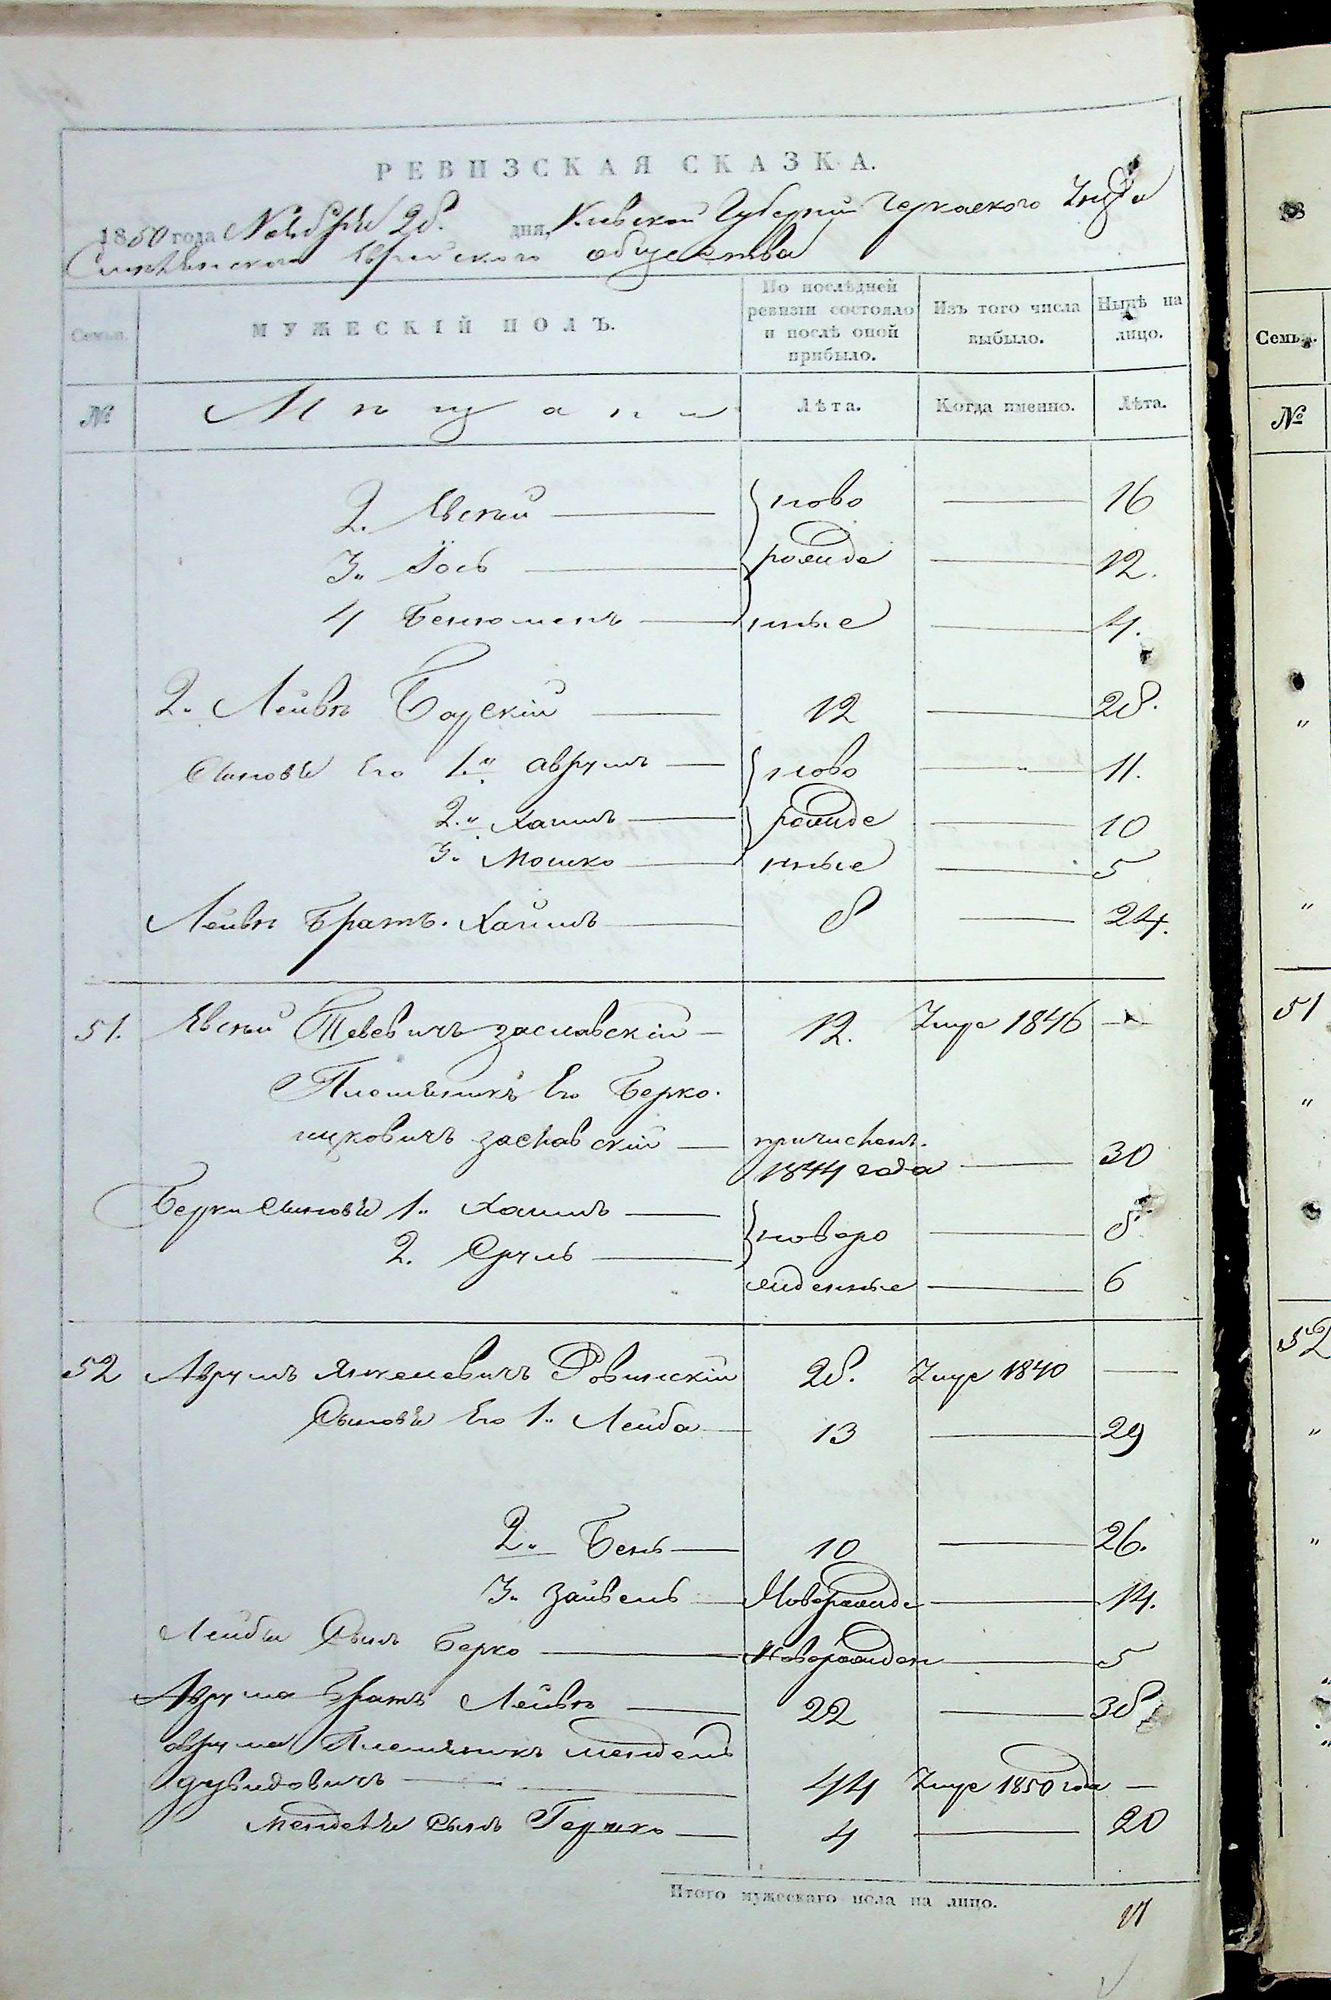 РЕВИЗСКАЯ СКАЗКА.
1850 года Ноября 28. дня, Киевской Губернии Черкаского Уезда
Смелянского Еврейского общества
Семьи. МУЖЕСКІЙ ПОЛЪ. По послѣдней ревизіи состояло и послѣ оной прибыло. Изъ того числа выбыло. Нынѣ на лицо.
№ Мѣщане Лѣта. Когда именно. Лѣта.
2. Евсей — ново — 16
3. Іось — рожде — 12.
4 Бенюменъ — нные — 4.
2. Лейвп Барскій — 12 — 28.
Сыновья Его 1. Аврумъ — ново — 11.
2. Хаимъ — рожде — 10
3. Мошко — нные — 5
Лейвп Братъ. Хаимъ — 8 — 24.
51. Евсей Тевевичъ Заславскій — 12. Умре 1846 —
Племяникъ Его Берко
ицковичъ Заславскій — причислен. 1844 года — 30
Берки Сыновья 1. Хаимъ — новоро — 8
2. Сруль — жденные — 6
52 Аврумъ Янкелевичъ Ровинскій 28. Умре 1840 —
Сыновья Его 1. Лейба — 13 — 29
2. Бень — 10 — 26.
3. Зайвель — Новорожде — 14.
Лейбы Сынъ Берко — Новорожден — 5
Аврума Братъ Лейвп — 22 — 38
Аврума Племяникъ Мендель
дувидовичъ — 44 Умре 1850 года —
Менделя Сынъ Гершко — 4 — 20
Итого мужескаго пола на лицо. 17
Семьи.
№
51
52